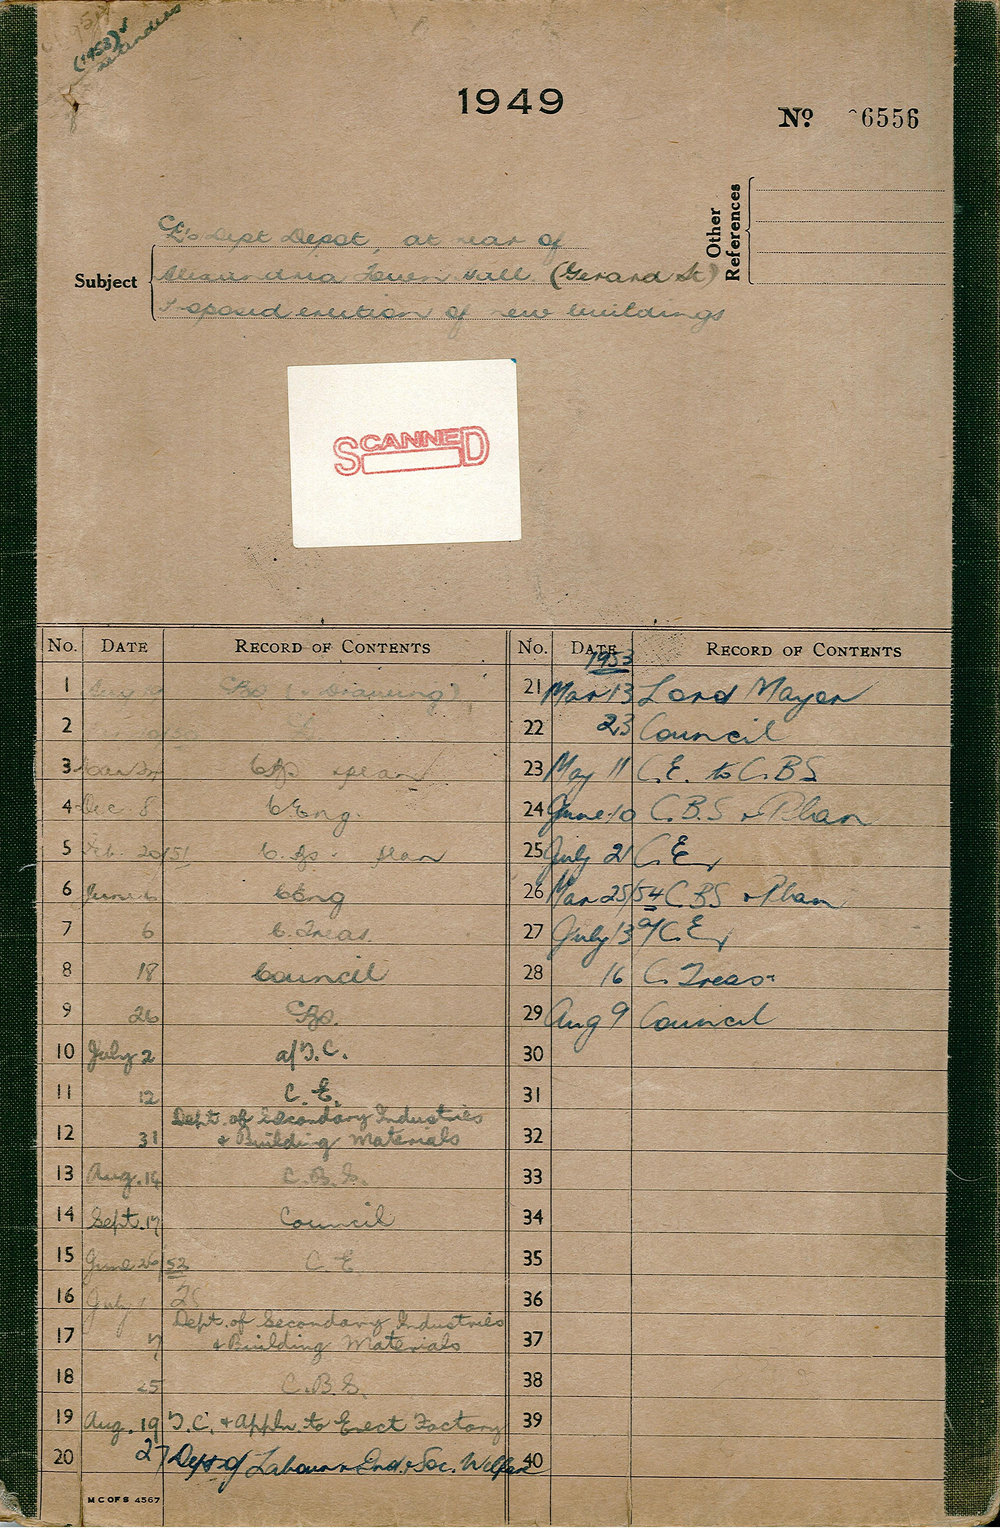 (1953)
1949
No 6556
Other References
Subject
CE's Dept Depot, at rear of
Alexandria Town Hall (Gerard St)
Proposed erection of new buildings
SCANNED
No. DATE RECORD OF CONTENTS
1 CBS (+ Drawing)
2
3 CBS + plan
4 Dec. 8 C Eng.
5 Feb. 20/51 C.BS. plan
6 June 6 C Eng
7 6 C. Treas.
8 18 Council
9 26 CBS.
10 July 2 a/T.C.
11 12 C. E.
12 31 Dept. of Secondary Industries
& Building Materials
13 Aug. 14 C.B.S.
14 Sept. 17 Council
15 June 26/52 C. E.
16 July 1
17 7 Dept. of Secondary Industries
& Building Materials
18 25 C.B.S.
19 Aug. 19 T.C. + Appln. to Erect Factory
20 27 Dept of Labour & Ind. & Soc. Welfare
No. DATE RECORD OF CONTENTS
1953
21 Mar 13 Lord Mayor
22 23 Council
23 May 11 C.E. to C.B.S
24 June 10 C.B.S + Plan
25 July 21 C.E.
26 Mar 25/54 C.BS + Plan
27 July 13 a/C.E.
28 16 C. Treas.
29 Aug 9 Council
30
31
32
33
34
35
36
37
38
39
40
M C OF S 4567